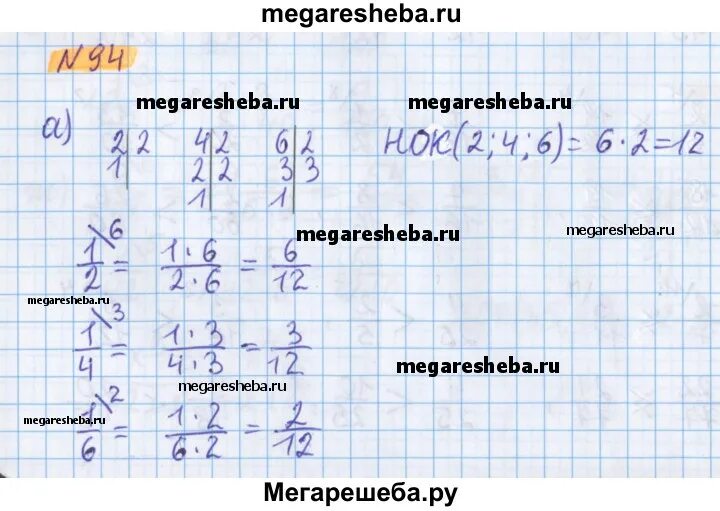 megaresheba.ru
N 94
megaresheba.ru megaresheba.ru
а) 2|2 4|2 6|2 НОК(2;4;6)=6·2=12
1| 2|2 3|3
1| 1|
megaresheba.ru megaresheba.ru
1/2\6 = 1·6/2·6 = 6/12
megaresheba.ru
1/4\3 = 1·3/4·3 = 3/12
megaresheba.ru
megaresheba.ru
1/6\2 = 1·2/6·2 = 2/12
megaresheba.ru
Мегарешеба.ру